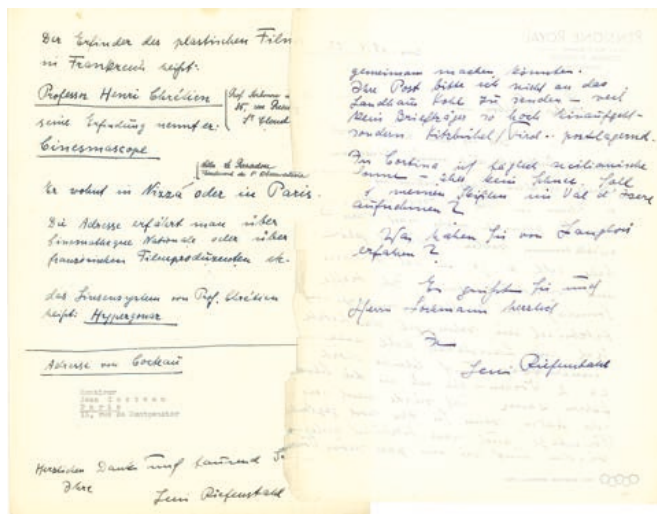 Der Erfinder des plastischen Film
in Frankreich heißt:
Professor Henri Chrétien
seine Erfindung nennt er:
Cinemascope
Er wohnt in Nizza oder in Paris.
Die Adresse erfährt man über
Cinemathèque Nationale oder über
französischen Filmproduzenten etc.
das Linsensystem von Prof. Chrétien
heißt: Hypergonar
Adresse von Cocteau
Monsieur
Jean Cocteau
Paris
rue de Montpensier
Herzlichen Dank und tausend
Ihre
Leni Riefenstahl
PENSIONE ROYAL
gemeinsam machen könnten.
Ihre Post bitte ich nicht an das
Landhaus zu senden – weil
kein Briefträger so hoch hinaufgeht –
sondern Kitzbühel/Tirol – postlagernd.
In Cortina ist täglich sicilianische
Sonne – aber kein Schnee. Soll
ich meinen Skifilm in Val d'Isère
aufnehmen?
Was haben Sie von Langlois
erfahren?
Es grüßt Sie und
Herrn herzlich
Ihre
Leni Riefenstahl